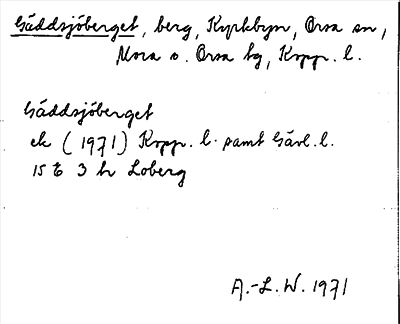 Gäddsjöberget, berg, Kyrkbyn, Orsa sn,
Mora o. Orsa tg, Kopp. l.
Gäddsjöberget
ek (1971) Kopp. l. samt Gävl. l.
15 E 3 h Loberg
A.-L. W. 1971